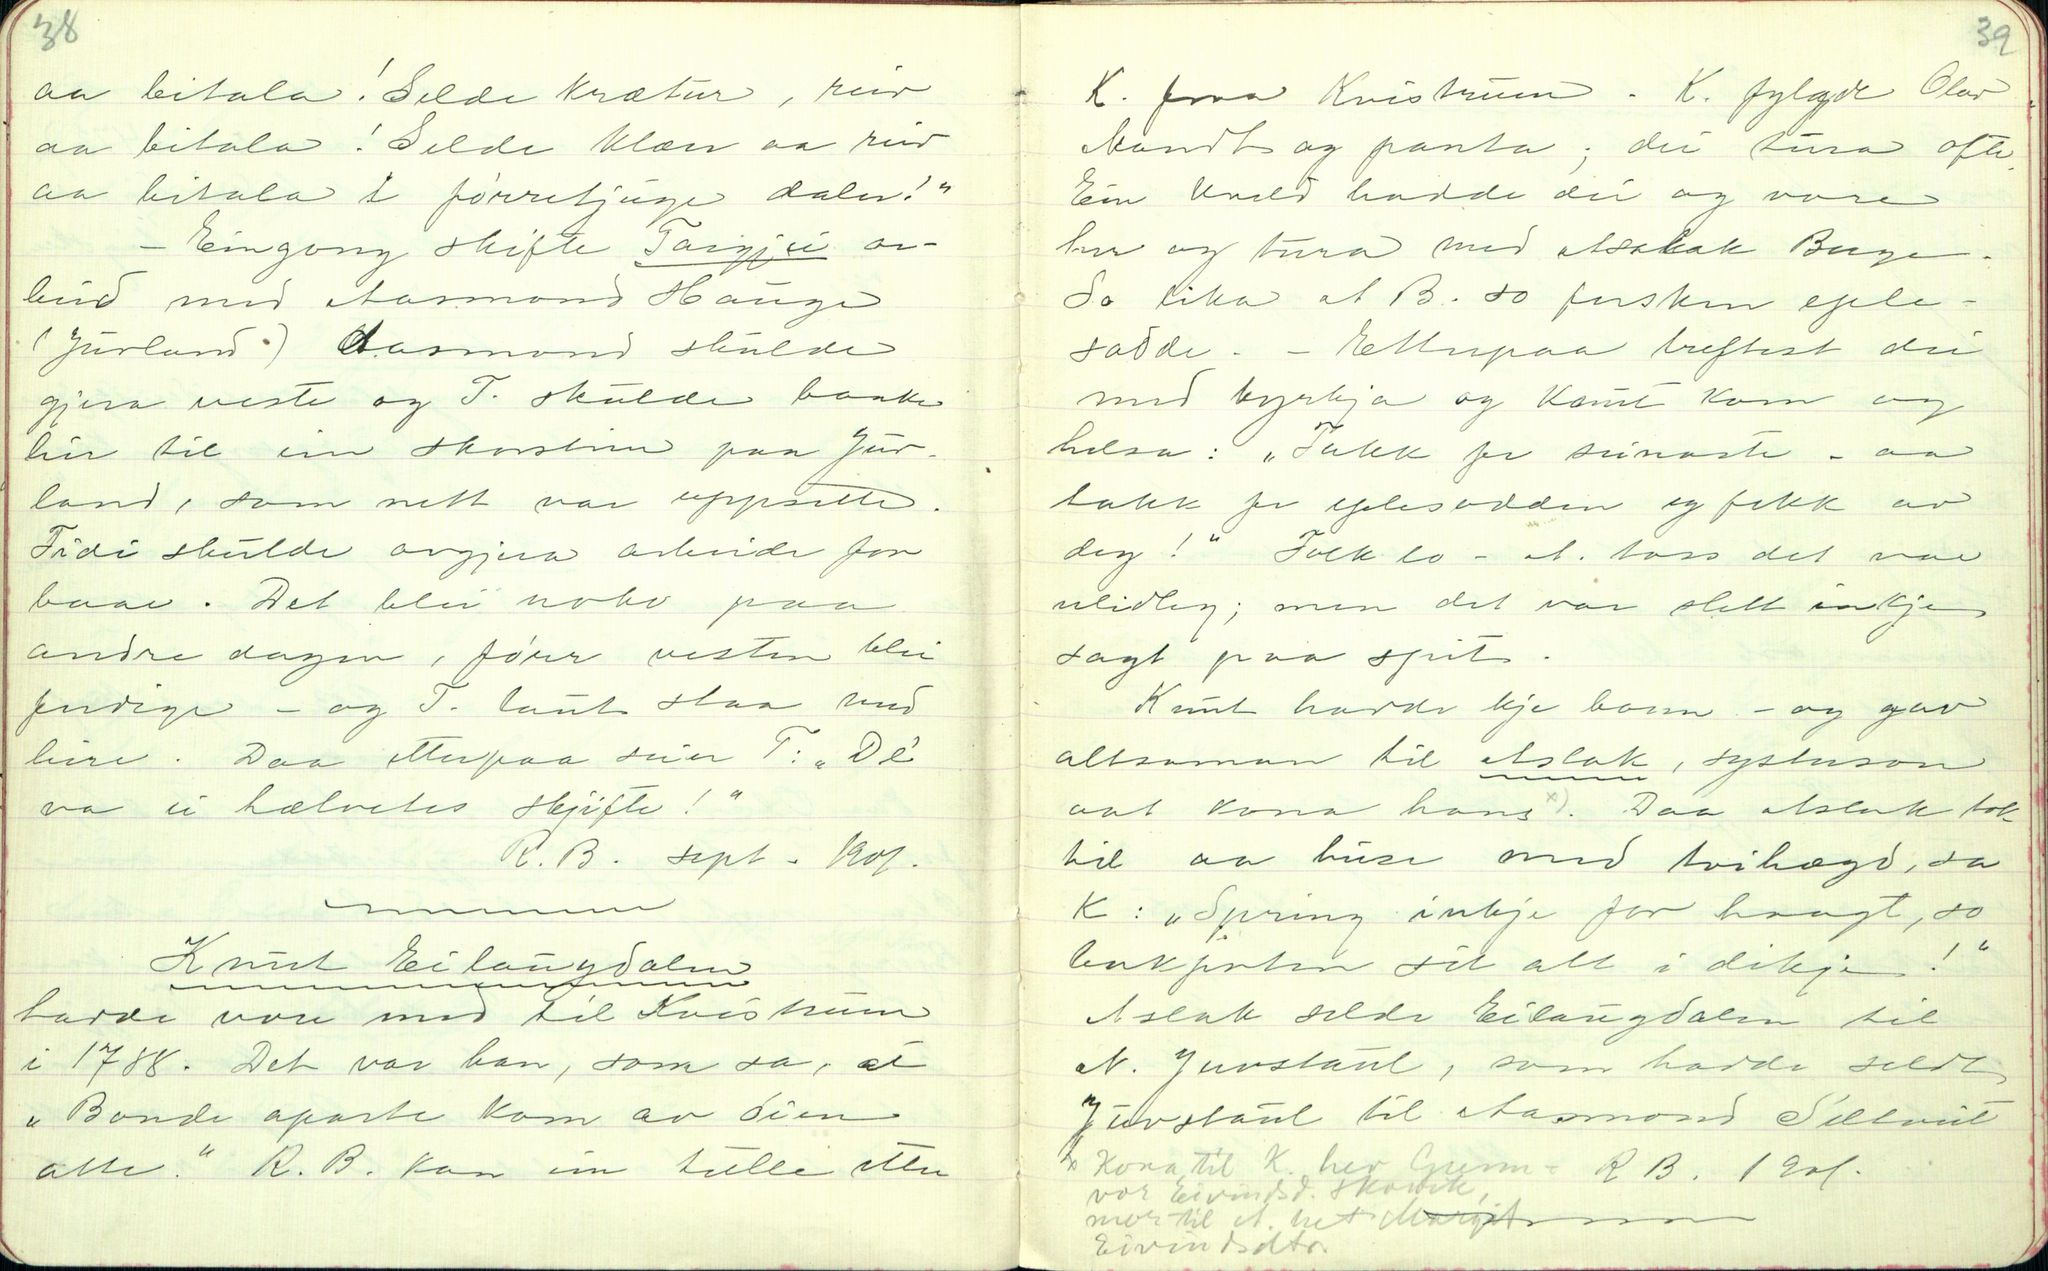 38
aa bitala! Selde krætur, reiv
aa bitala! Selde klæu aa reiv
aa bitala i förretjuge daler!"
- Eingong skifte Targjei ar-
beid med Aasmond Hauge
(Jurland.) Aasmond skulde
gjera veste og T. skulde banke
leir til ein skorstein paa Jur-
land, som nett var uppsette.
Tidi skulde avgjera arbeide for
baae. Det blei noko paa
andre dagen, förr vesten blei
ferdige - og T. laut staa med
leire. Daa etterpaa seier T: "Dè
va ei hælvetes skjifte!"
R. B. sept. 1901.
Knut Eilaugdalen
hadde vore med til Kvistrum
i 1788. Det var han, som sa, at
"Bonde aparte kom av dien
atte." R. B. kan ein tulle etter
39
K. fraa Kvistrum. K. fylgde Olav
Nandt og panta; dei tura ofte.
Ein kveld hadde dei og vore
her og tura med Aslak Buge.
So lika at B. so fersken eple-
sodde. - Etterpaa treftest dei
med kyrkja og Knut kom og
helsa: "Takk for seinaste - aa
takk for eplesodden eg fekk av
deg!" Folk lo - A. tass det var
ulidleg; men det var slett inkje
sagt paa spit.
Knut hadde kje born - og gav
altsaman til Aslak, systerson
aat kona hans x). Daa Aslak tok
til aa huse med tvihægd, sa
K: "Spring inkje for haagt, so
bakparten sit att i dikje!"
Aslak selde Eilaugdalen til
A. Juvstaul, som hadde seldt
Juvstaul til Aasmond Seltveit
R B. 1901.
x Kona til K. hev Gunn-
vor Eivindsd. Skorvik,
mor til A. het Margit
Eivindsdtr.